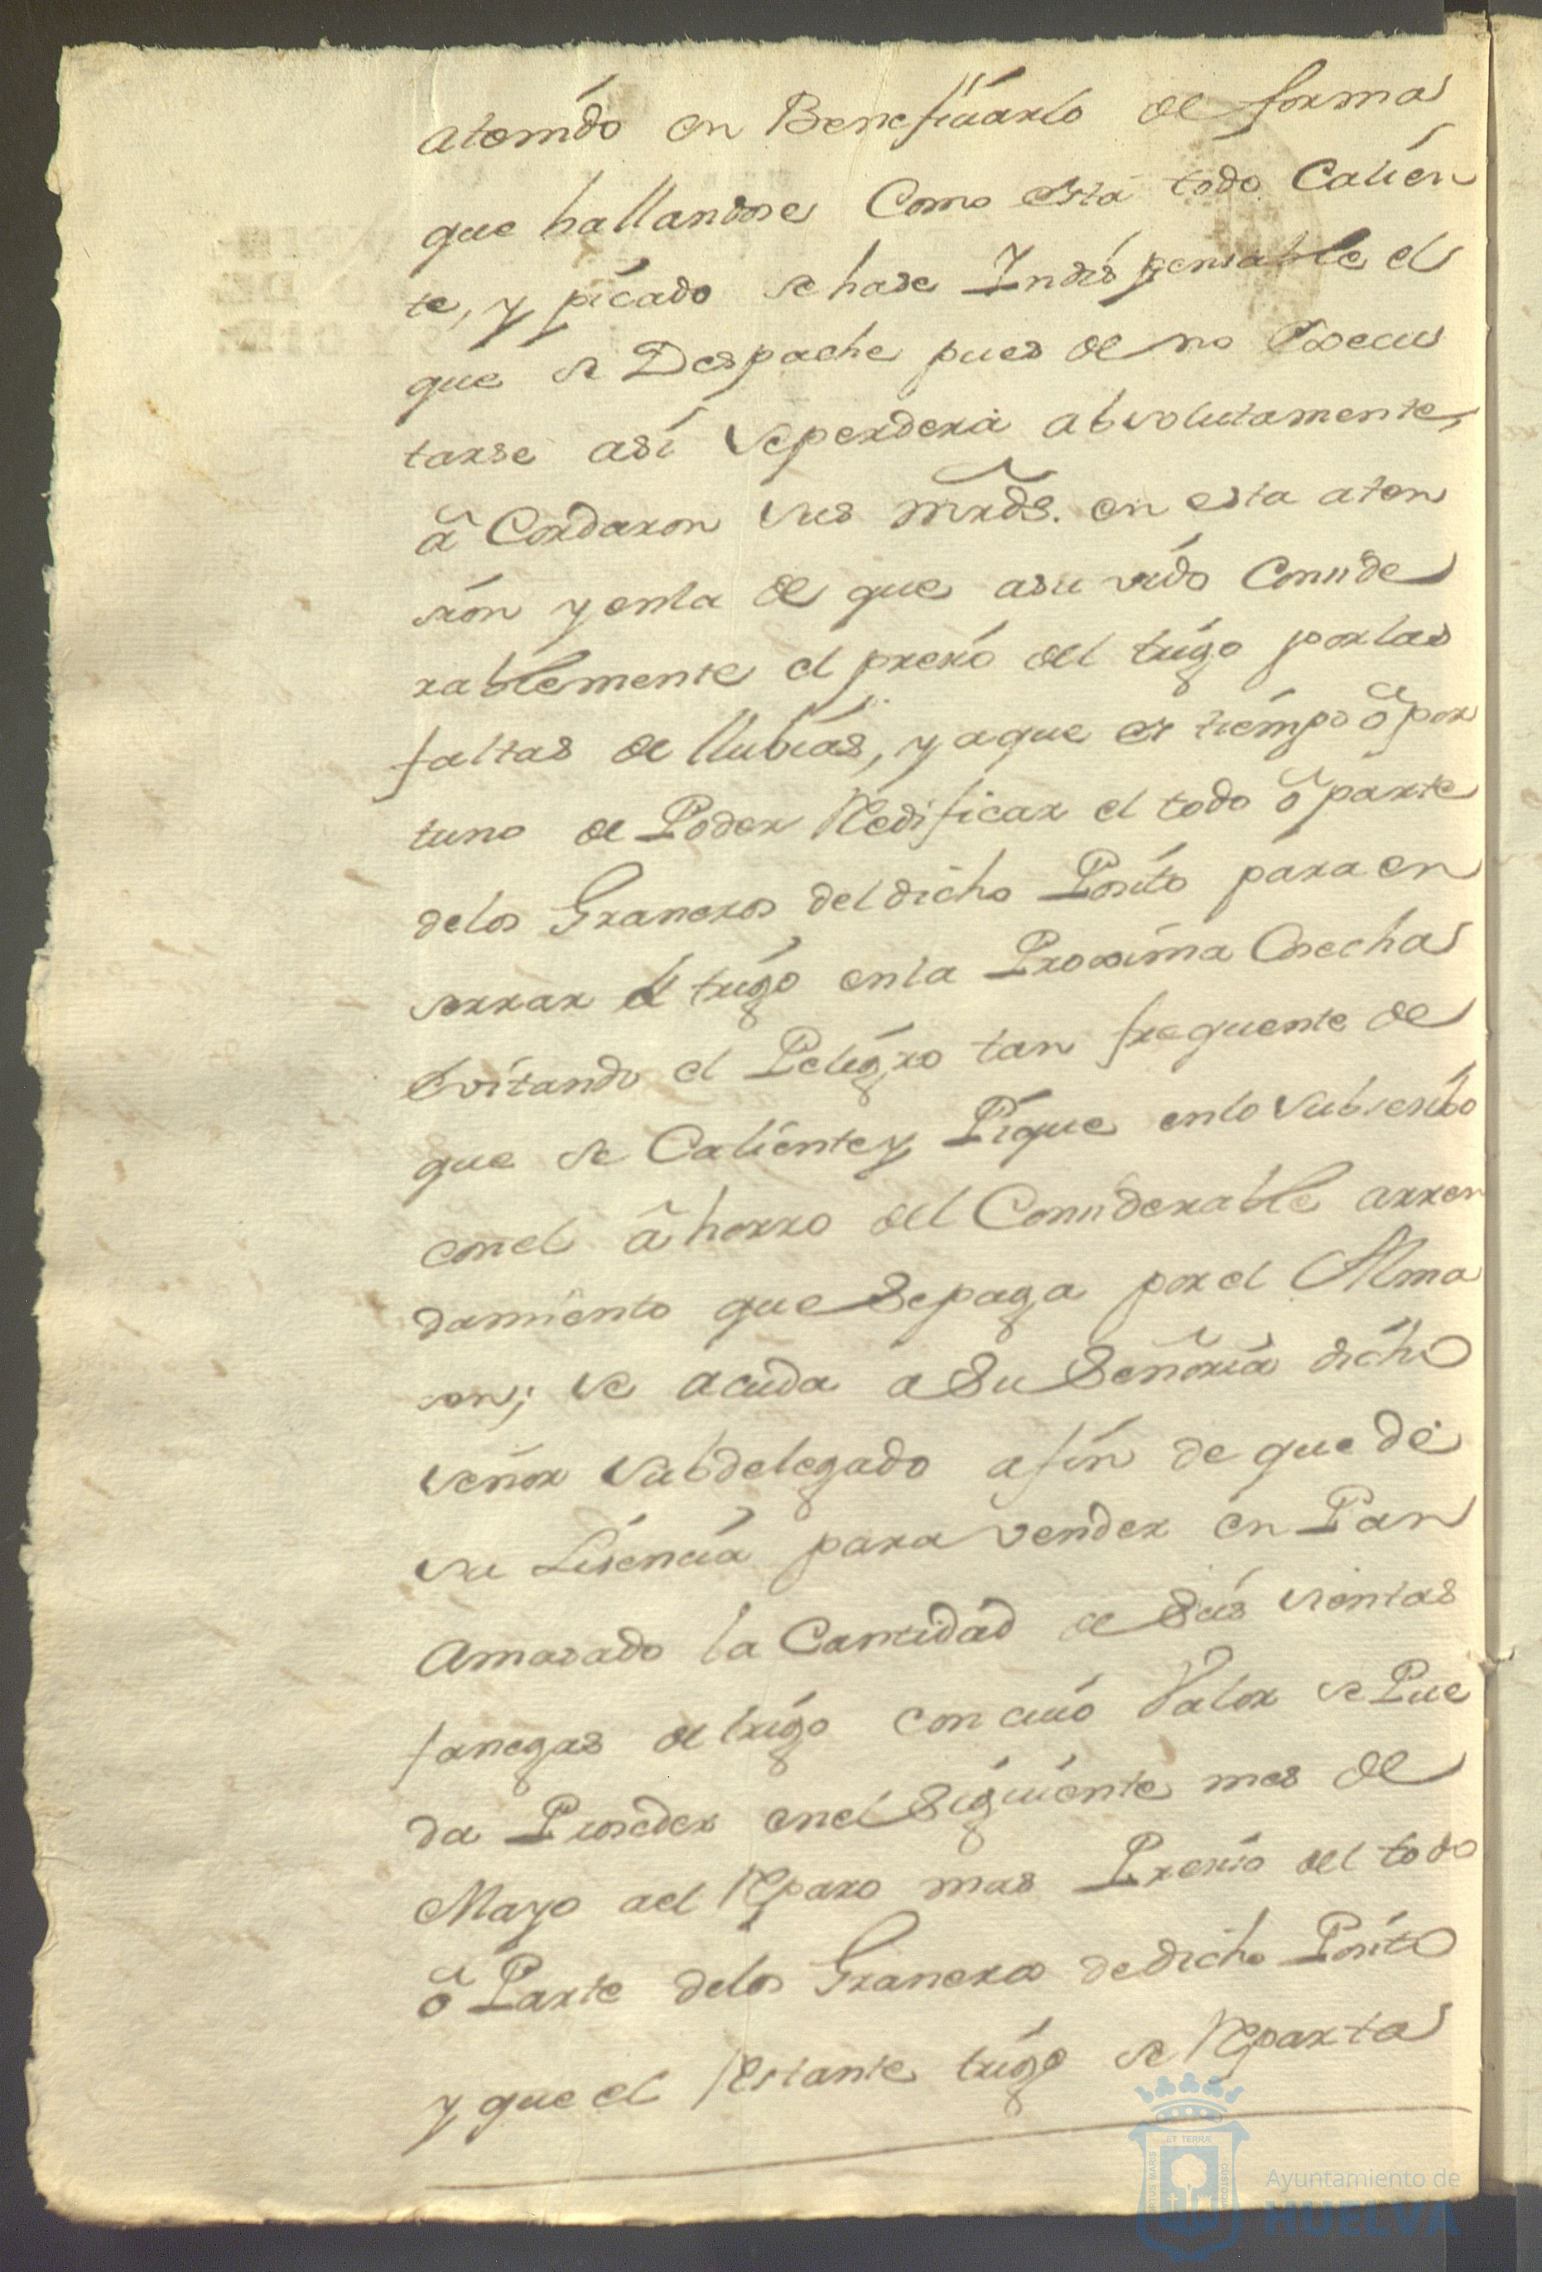 atenído en Benefiíarlo de forma
que hallandose Como está todo Calién
te, y picado se hase Indispensable el
que se Despache pues de no Execu
tarse así se perderá absolutamente,
â Cordaron sus mrds. en esta aten
sión y enla de que asu vido Conside
rablemente el presio del trigo por las
faltas de llubias, y aque es tiémpo ôpor
tuno de Poder Redificar el todo ô parte
delos Graneros del dicho Pósito para en
serrar el trigo enla Proxima Cosecha
Evitando el Peligro tan frequente de
que se Caliente y Pique enlo Subsesibo
conel âhorro del Considerable arren
damiento que Sepaga por el Alma
sen; se acuda a Su Señoria dicho
señor Subdelegado afin de que dé
su Lisencia para vender en Pan
Amasado la Cantidad de Seis sientas
fanegas de trigo con cuio Valor se Pue
da Proseder enel Siguiente mes de
Mayo ael Reparo mas Presiso del todo
ô Parte delos Graneros de dicho Pósito
y que el Restante trigo se Reparta
ET TERRÆ
Ayuntamiento de
HUELVA